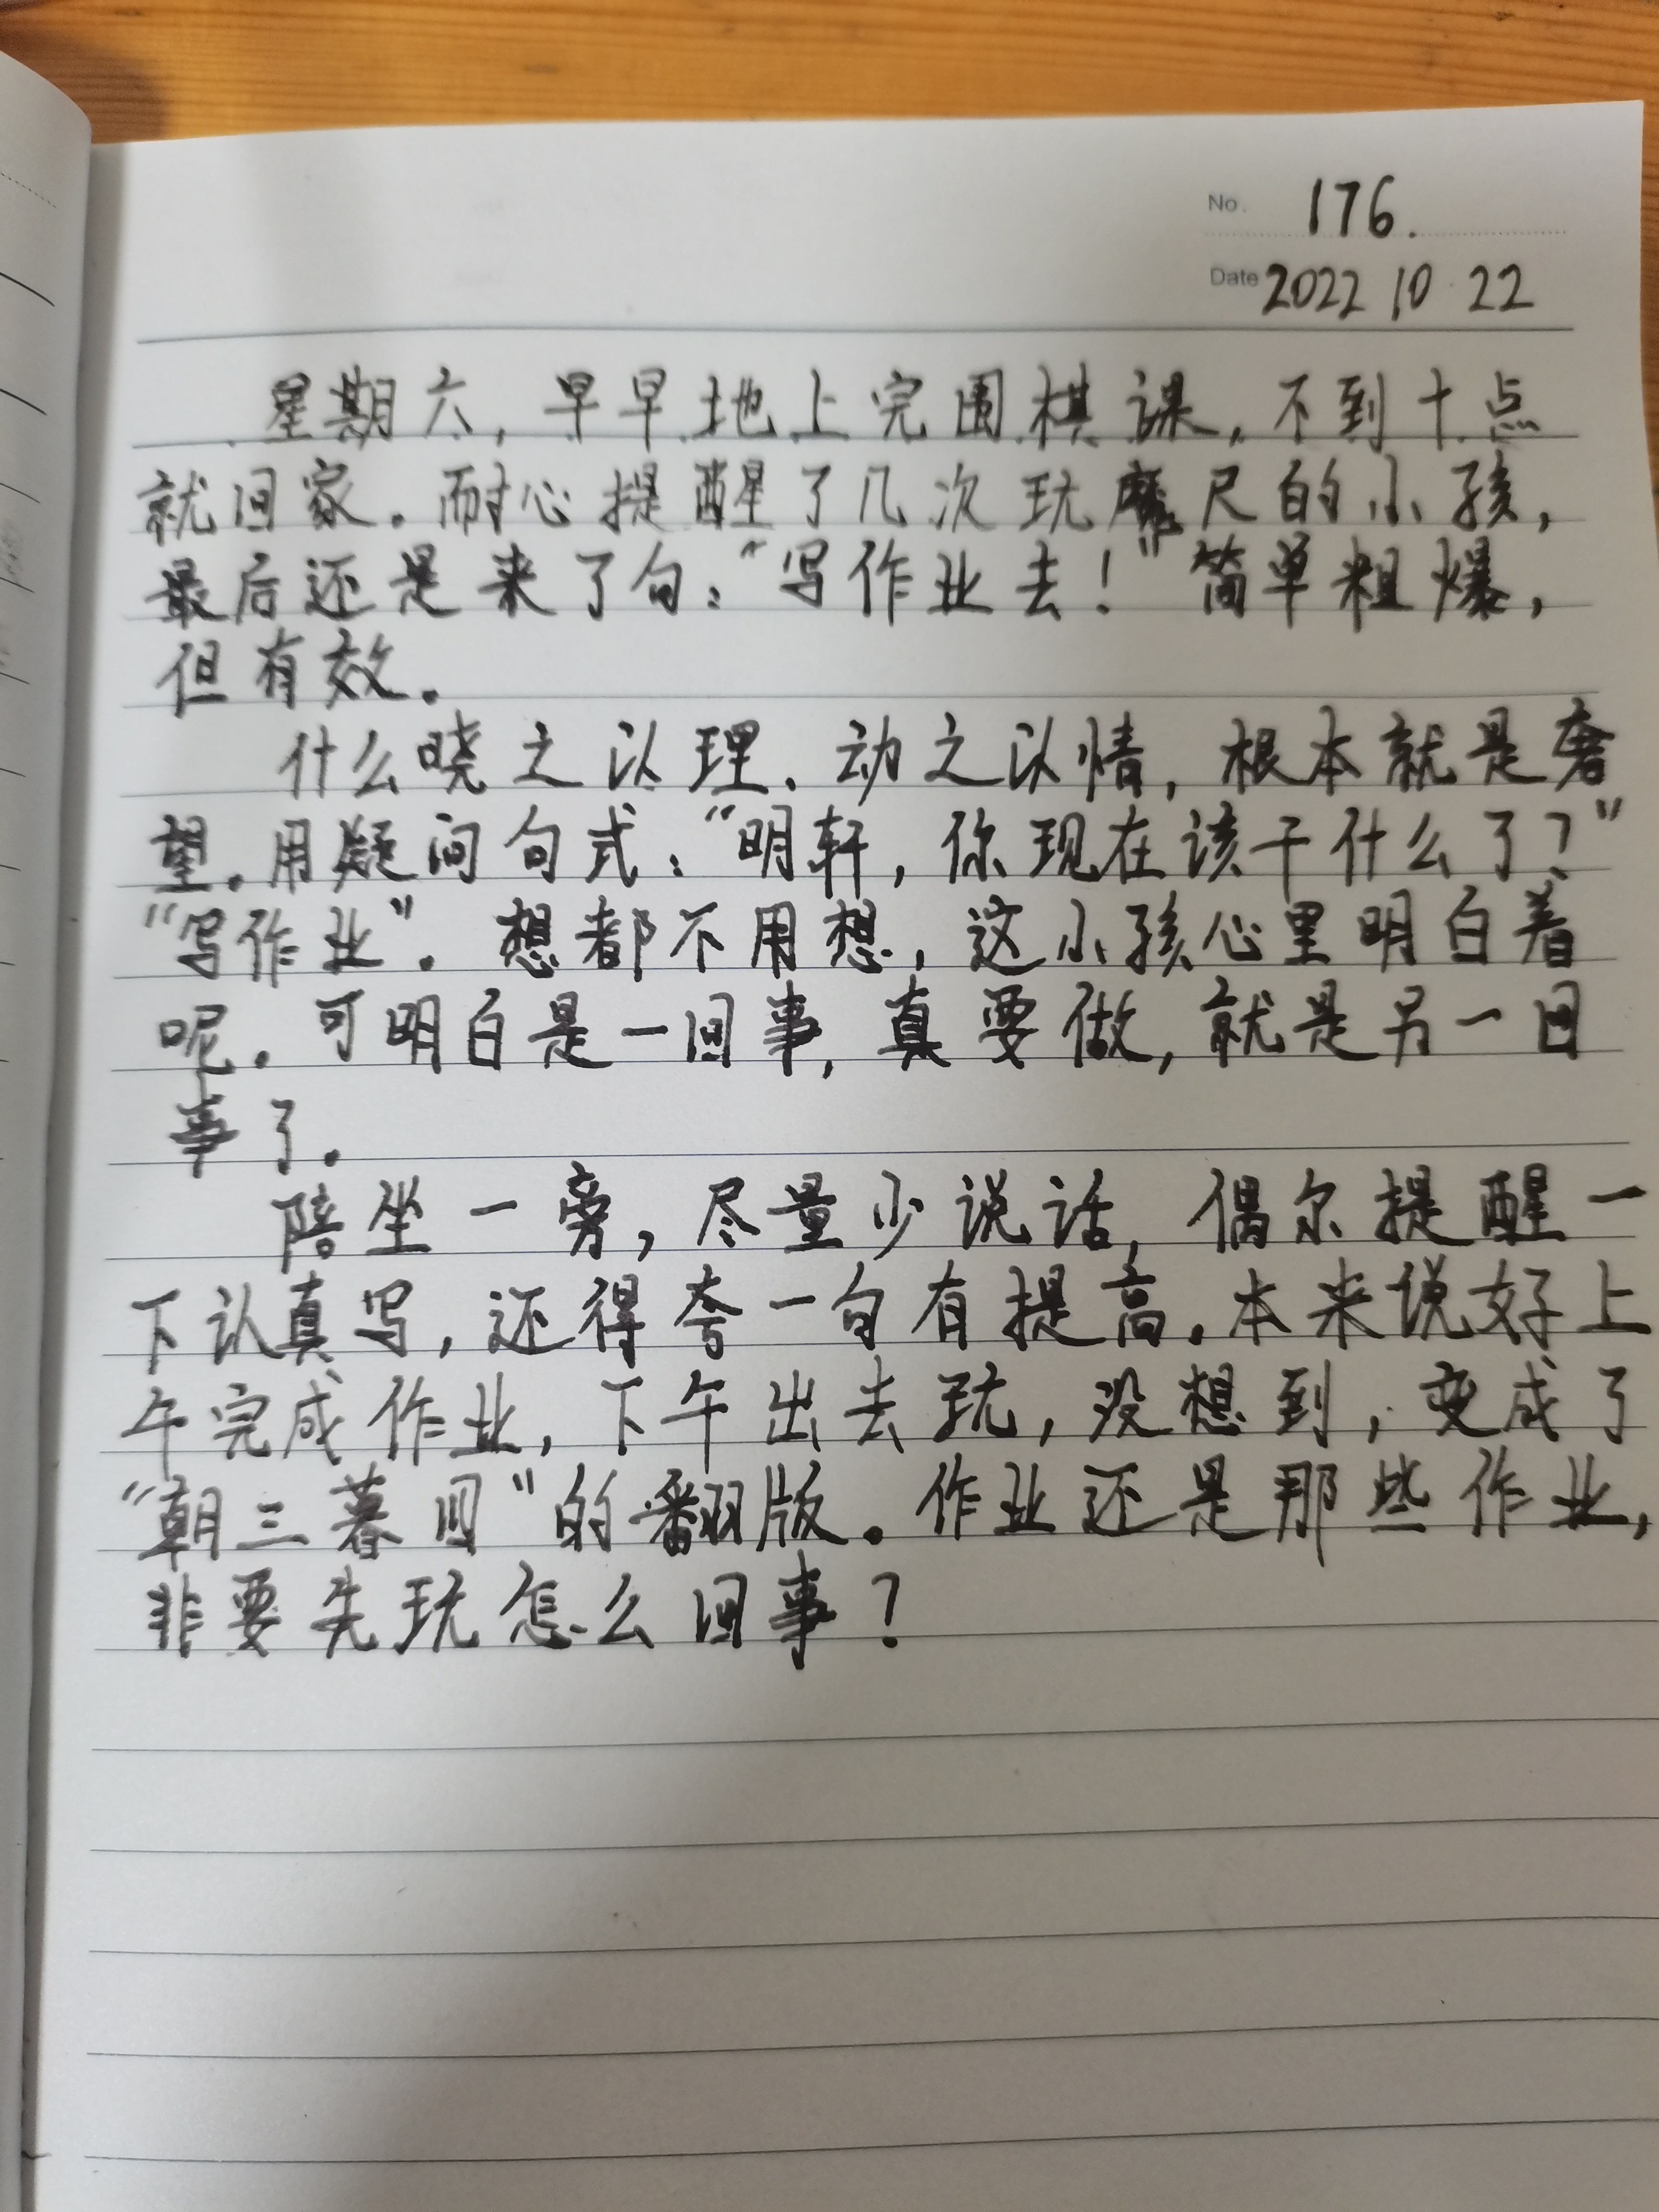 No. 176.
Date 2022 10 22
星期六,早早地上完围棋课,不到十点
就回家。耐心提醒了几次玩魔尺的小孩,
最后还是来了句:“写作业去!”简单粗爆,
但有效。
什么晓之以理、动之以情,根本就是奢
望。用疑问句式:“明轩,你现在该干什么了?”
“写作业”。想都不用想,这小孩心里明白着
呢。可明白是一回事,真要做,就是另一回
事了。
陪坐一旁,尽量少说话,偶尔提醒一
下认真写,还得夸一句有提高。本来说好上
午完成作业,下午出去玩,没想到,变成了
“朝三暮四”的翻版。作业还是那些作业,
非要先玩怎么回事?